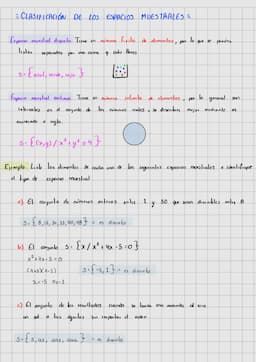 : CLASIFICACIÓN DE LOS ESPACIOS MUESTRALES :
Espacio muestral discreto: Tiene un número finito de elementos, por lo que se pueden
listar separados por una coma y entre llaves.
S = { azul, verde, rojo }
Espacio muestral continuo: Tiene un número infinito de elementos, por lo general son
intervalos en el conjunto de los números reales, se describen mejor mediante un
enunciado o regla.
S = { (x,y) / x² + y² = 4 }
Ejemplo: Liste los elementos de cada uno de los siguientes espacios muestrales e identifique
el tipo de espacio muestral
a) El conjunto de números enteros entre 1 y 50 que sean divisibles entre 8
S = { 8, 16, 24, 32, 40, 48 } → discreto
b) El conjunto S = { x / x² + 4x - 5 = 0 }
x² + 4x - 5 = 0
(x+5)(x-1)
S = { -5, 1 } → discreto
x = -5 x = 1
c) El conjunto de los resultados cuando se lanza una moneda al aire